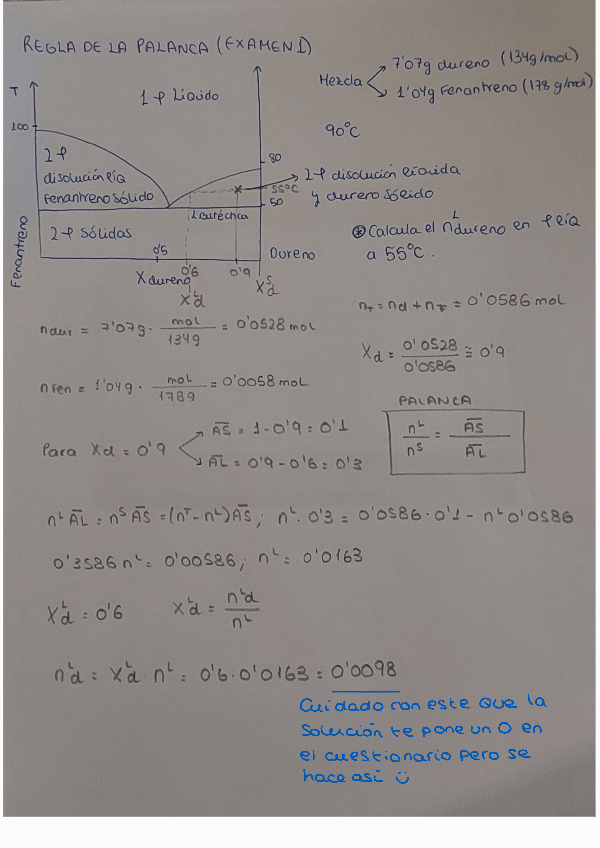 REGLA DE LA PALANCA (EXAMEN 1)
Mezcla
7'07g dureno (134g/mol)
1'04g Fenantreno (178 g/mol)
90°C
T
100
1 φ Líquido
2 φ
disolución líq
Fenantreno sólido
2 φ Sólidas
L eutéctica
80
55°C
50
2 φ disolución líquida
y dureno sólido
Fenantreno
Dureno
0'5
X dureno
0'6
0'9
X^L_d
X^S_d
⊛ Calcula el n^L dureno en φ líq
a 55°C.
n_T = n_d + n_F = 0'0586 mol
n dur = 7'07g · mol/134g = 0'0528 mol
X_d = 0'0528/0'0586 ≅ 0'9
n Fen = 1'04g · mol/178g = 0'0058 mol
Para X_d = 0'9
AS = 1 - 0'9 = 0'1
AL = 0'9 - 0'6 = 0'3
PALANCA
n^L/n^S = AS/AL
n^L AL = n^S AS = (n^T - n^L) AS; n^L · 0'3 = 0'0586 · 0'1 - n^L 0'0586
0'3586 n^L = 0'00586; n^L = 0'0163
X^L_d = 0'6 X^L_d = n^L_d/n^L
n^L_d = X^L_d · n^L = 0'6 · 0'0163 = 0'0098
Cuidado con este que la
solución te pone un 0 en
el cuestionario pero se
hace así ü